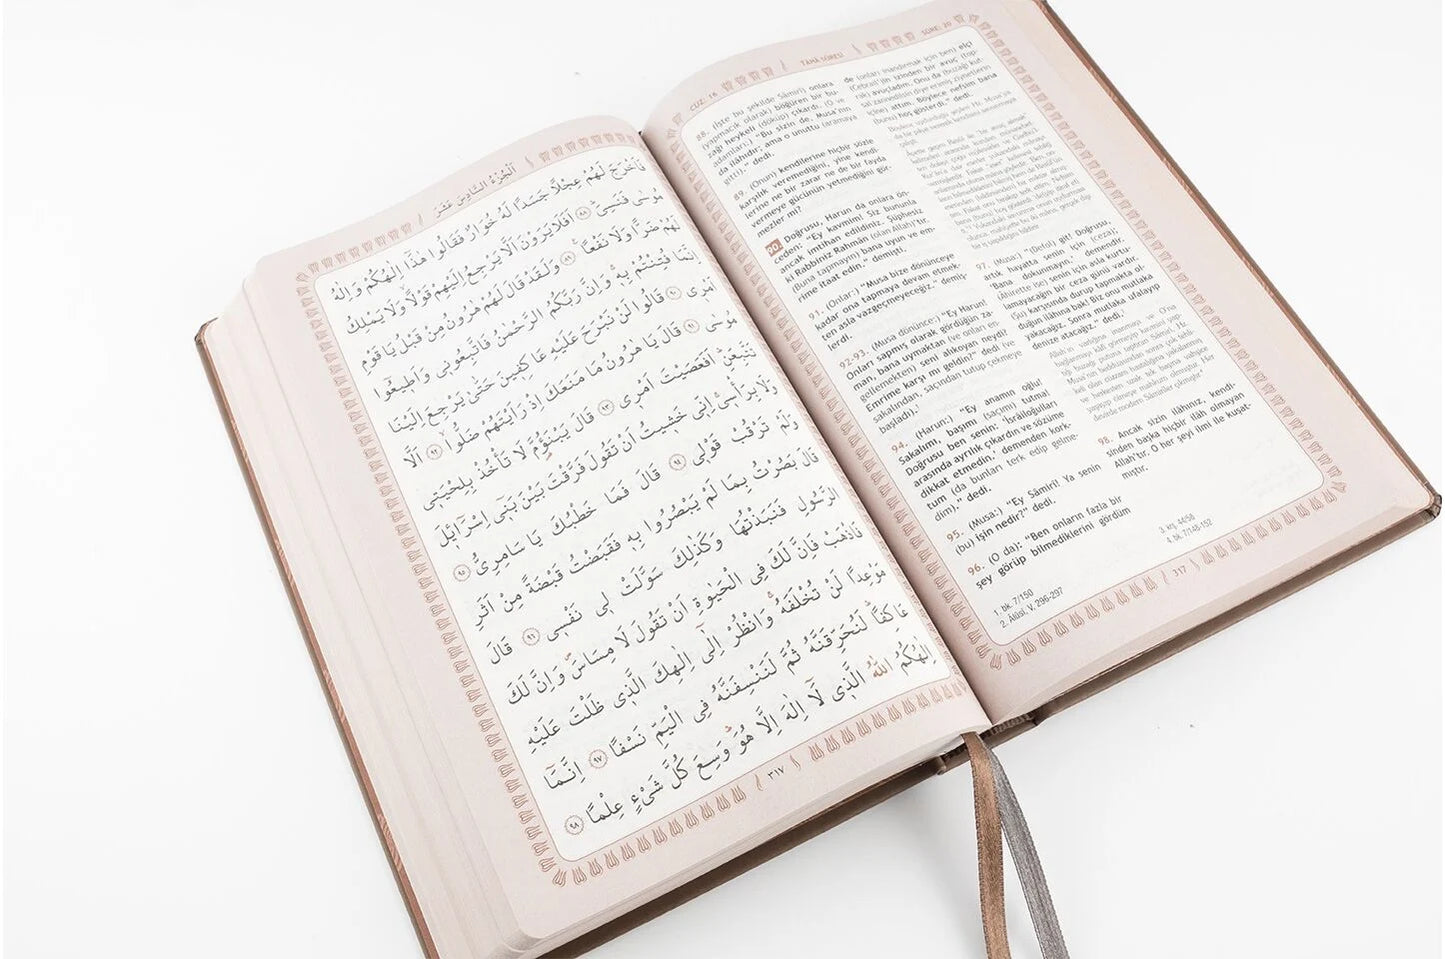 اَلْجُزْءُ السَّادِسَ عَشَرَ
فَاَخْرَجَ لَهُمْ عِجْلاً جَسَداً لَهُ خُوَارٌ فَقَالُوا هٰذَٓا اِلٰهُكُمْ وَاِلٰهُ
مُوسٰى فَنَسِيَۜ ﴿٨٨﴾ اَفَلَا يَرَوْنَ اَلَّا يَرْجِعُ اِلَيْهِمْ قَوْلاًۙ وَلَا يَمْلِكُ
لَهُمْ ضَراًّ وَلَا نَفْعاً۟ ﴿٨٩﴾ وَلَقَدْ قَالَ لَهُمْ هٰرُونُ مِنْ قَبْلُ يَا قَوْمِ
اِنَّمَا فُتِنْتُمْ بِه۪ۚ وَاِنَّ رَبَّكُمُ الرَّحْمٰنُ فَاتَّبِعُون۪ي وَاَط۪يعُٓوا
اَمْر۪ي ﴿٩٠﴾ قَالُوا لَنْ نَبْرَحَ عَلَيْهِ عَاكِف۪ينَ حَتّٰى يَرْجِعَ اِلَيْنَا
مُوسٰى ﴿٩١﴾ قَالَ يَا هٰرُونُ مَا مَنَعَكَ اِذْ رَاَيْتَهُمْ ضَلُّواۙ ﴿٩٢﴾ اَلَّا
تَتَّبِعَنِۜ اَفَعَصَيْتَ اَمْر۪ي ﴿٩٣﴾ قَالَ يَبْنَؤُ۬مَّ لَا تَأْخُذْ بِلِحْيَت۪ي
وَلَا بِرَأْس۪يۚ اِنّ۪ي خَش۪يتُ اَنْ تَقُولَ فَرَّقْتَ بَيْنَ بَن۪ٓي اِسْرَٓائ۪لَ
وَلَمْ تَرْقُبْ قَوْل۪ي ﴿٩٤﴾ قَالَ فَمَا خَطْبُكَ يَا سَامِرِيُّ ﴿٩٥﴾
قَالَ بَصُرْتُ بِمَا لَمْ يَبْصُرُوا بِه۪ فَقَبَضْتُ قَبْضَةً مِنْ اَثَرِ
الرَّسُولِ فَنَبَذْتُهَا وَكَذٰلِكَ سَوَّلَتْ ل۪ي نَفْس۪ي ﴿٩٦﴾ قَالَ
فَاذْهَبْ فَاِنَّ لَكَ فِي الْحَيٰوةِ اَنْ تَقُولَ لَا مِسَاسَۖ وَاِنَّ لَكَ
مَوْعِداً لَنْ تُخْلَفَهُۚ وَانْظُرْ اِلٰٓى اِلٰهِكَ الَّذ۪ي ظَلْتَ عَلَيْهِ
عَاكِفاًۜ لَنُحَرِّقَنَّهُ ثُمَّ لَنَنْسِفَنَّهُ فِي الْيَمِّ نَسْفاً ﴿٩٧﴾ اِنَّمَٓا
اِلٰهُكُمُ اللّٰهُ الَّذ۪ي لَٓا اِلٰهَ اِلَّا هُوَۜ وَسِعَ كُلَّ شَيْءٍ عِلْماً ﴿٩٨﴾
٣١٧
CÜZ: 16
TÂHÂ SÛRESİ
SÛRE: 20
88. (İşte bu şekilde Sâmirî) onlara
(yapmacık olarak) böğüren bir bu-
zağı heykeli (döküp) çıkardı. (O ve
adamları:) "Bu sizin de, Musa'nın
da ilâhıdır; ama o unuttu (aramaya
gitti)." dedi.
89. (Onun) kendilerine hiçbir sözle
karşılık veremediğini, yine kendi-
lerine ne bir zarar ne de bir fayda
vermeye gücünün yetmediğini gör-
mezler mi?
90. Doğrusu, Harun da onlara ön-
ceden: "Ey kavmim! Siz bununla
ancak imtihan edildiniz. Şüphesiz
ki Rabbiniz Rahmân (olan Allah)'tır.
(Buna tapmayın) bana uyun ve em-
rime itaat edin." demişti.
91. (Onlar:) "Musa bize dönünceye
kadar ona tapmaya devam etmek-
ten asla vazgeçmeyeceğiz." demiş-
lerdi.
92-93. (Musa dönünce:) "Ey Harun!
Onları sapmış olarak gördüğün za-
man, bana uymaktan (ve onları en-
gellemekten) seni alıkoyan neydi?
Emrime karşı mı geldin?" dedi (ve
sakalından, saçından tutup çekmeye
başladı).
94. (Harun:) "Ey anamın oğlu!
Sakalımı, başımı (saçımı) tutma!
Doğrusu ben senin: 'İsrâîloğulları
arasında ayrılık çıkardın ve sözüme
dikkat etmedin,' demenden kork-
tum (da bunları terk edip gelme-
dim)." dedi.
95. (Musa:) "Ey Sâmirî! Ya senin
(bu) işin nedir?" dedi.
96. (O da): "Ben onların fazla bir
şey görüp bilmediklerini gördüm
1. bk. 7/150
2. Âlûsî, V, 296-297
de (onları inandırmak için ben) elçi
(Cebrail)'in izinden bir avuç (top-
rak) avuçladım. Onu da (buzağı kut-
sal zannedilsin diye erimiş ziynetlerin
içine) attım. Böylece nefsim bana
(bunu) hoş gösterdi." dedi.
97. (Musa:) "(Defol) git! Doğrusu,
artık hayatta senin için (ceza):
'Bana dokunmayın.' demendir.
(Âhirette ise) senin için asla kurtu-
lamayacağın bir ceza günü vardır.
(Şu) karşısında durup tapmakta ol-
duğun ilâhına bak! Biz onu mutlaka
yakacağız. Sonra mutlaka ufalayıp
denize atacağız." dedi.
98. Ancak sizin ilâhınız, kendi-
sinden başka hiçbir ilâh olmayan
Allah'tır. O her şeyi ilmi ile kuşat-
mıştır.
3. kş. 44/58
4. bk. 7/148-152
317